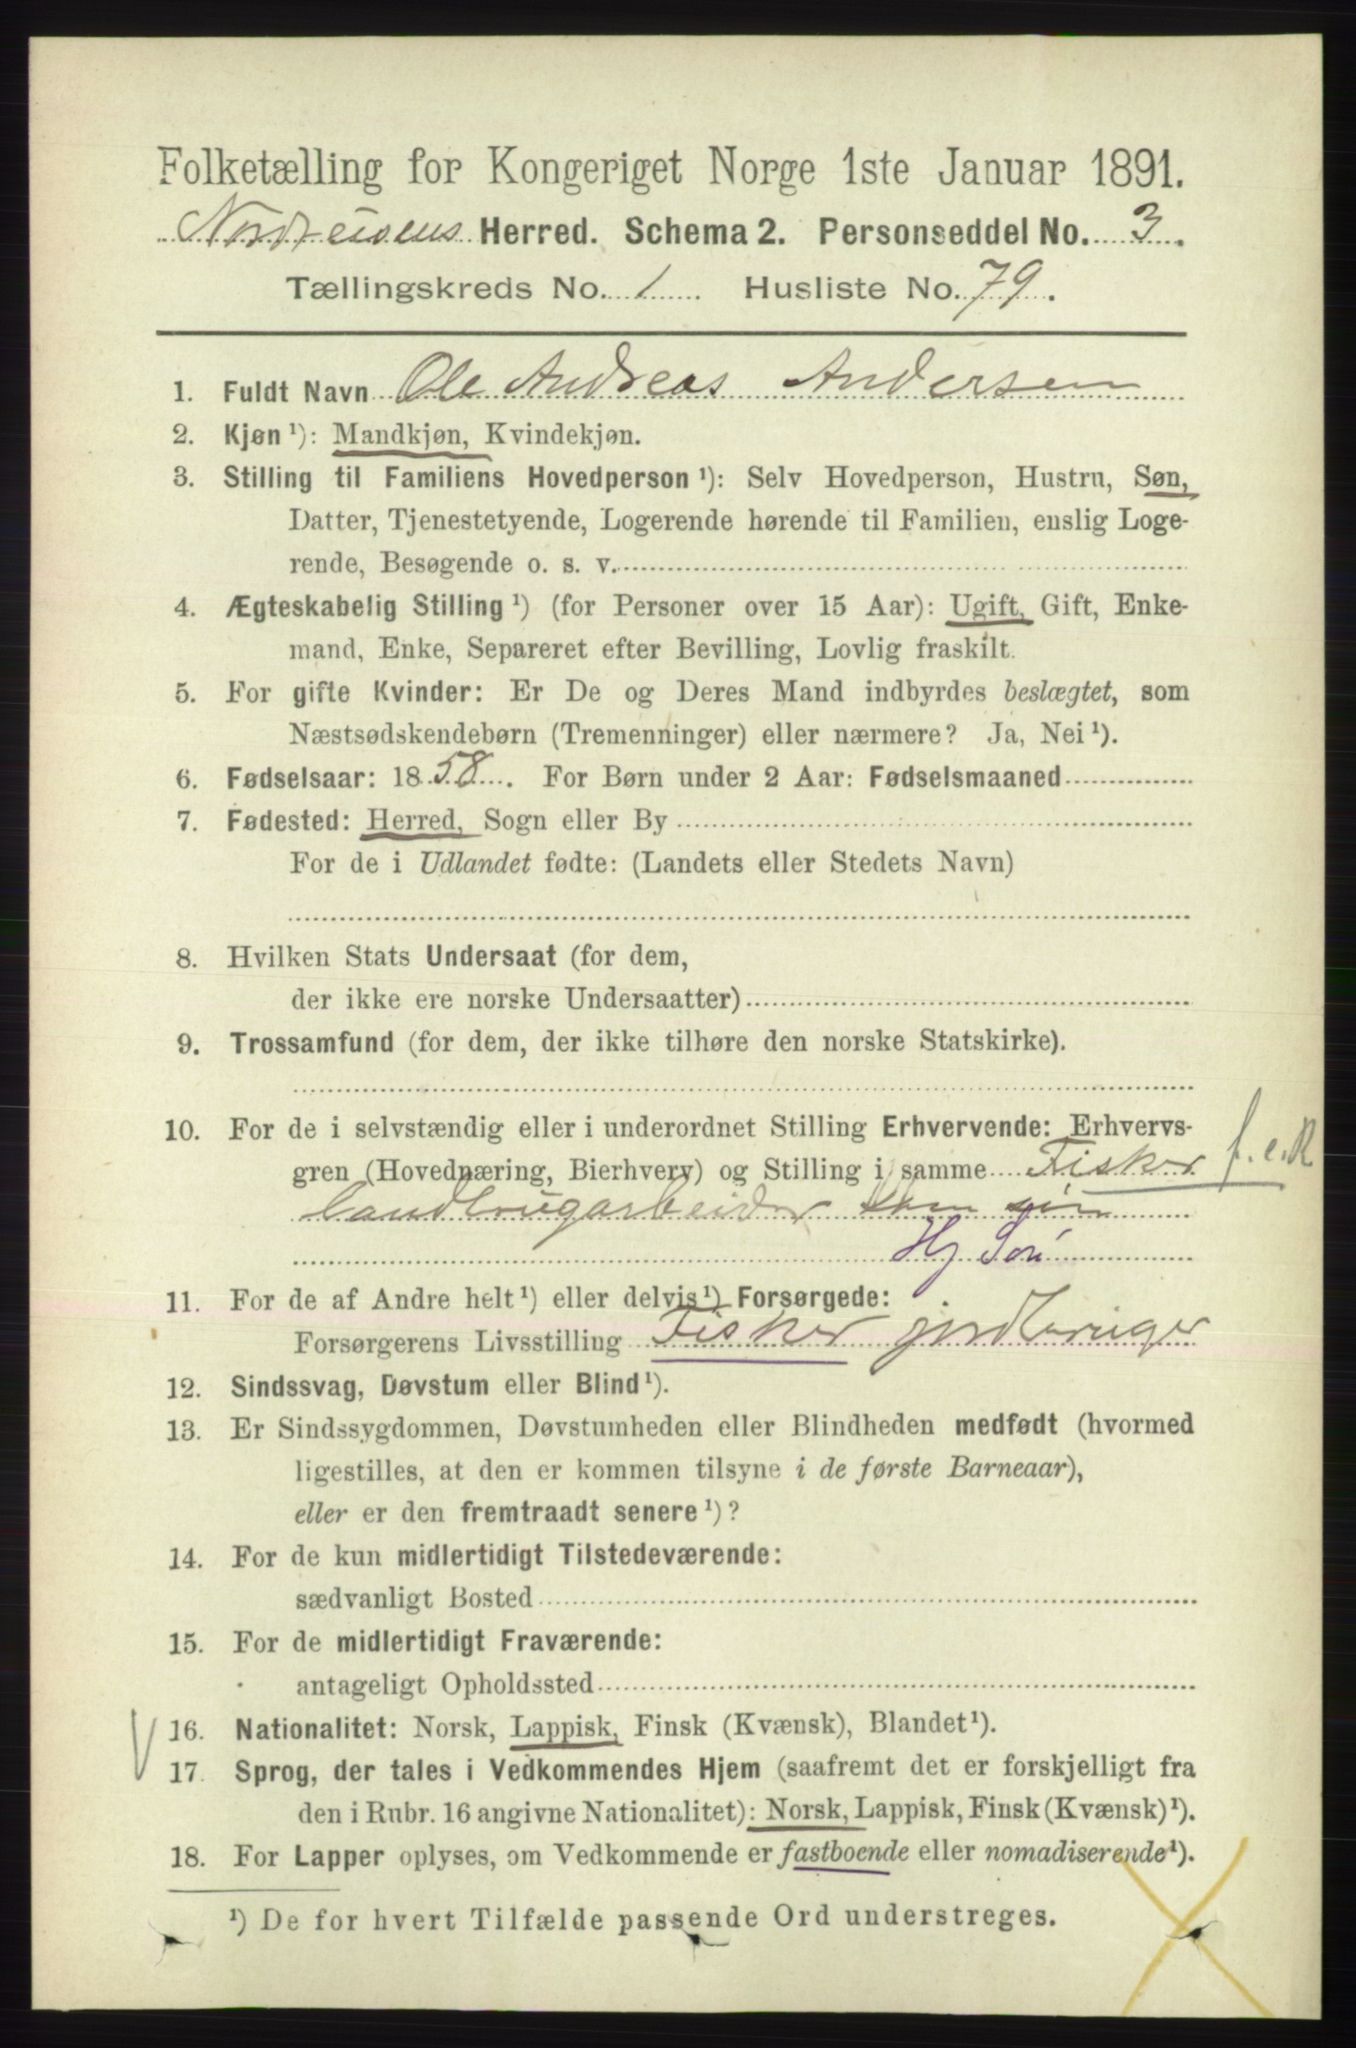 Folketælling for Kongeriget Norge 1ste Januar 1891.
Nordreisens Herred. Schema 2. Personseddel No. 3.
Tællingskreds No. 1 Husliste No. 79.
1. Fuldt Navn Ole Andreas Andersen
2. Kjøn ¹): Mandkjøn, Kvindekjøn.
3. Stilling til Familiens Hovedperson ¹): Selv Hovedperson, Hustru, Søn,
Datter, Tjenestetyende, Logerende hørende til Familien, enslig Loge-
rende, Besøgende o. s. v.
4. Ægteskabelig Stilling ¹) (for Personer over 15 Aar): Ugift, Gift, Enke-
mand, Enke, Separeret efter Bevilling, Lovlig fraskilt.
5. For gifte Kvinder: Er De og Deres Mand indbyrdes beslægtet, som
Næstsødskendebørn (Tremenninger) eller nærmere? Ja, Nei ¹).
6. Fødselsaar: 1858. For Børn under 2 Aar: Fødselsmaaned
7. Fødested: Herred, Sogn eller By
For de i Udlandet fødte: (Landets eller Stedets Navn)
8. Hvilken Stats Undersaat (for dem,
der ikke ere norske Undersaatter)
9. Trossamfund (for dem, der ikke tilhøre den norske Statskirke).
10. For de i selvstændig eller i underordnet Stilling Erhvervende: Erhvervs-
gren (Hovednæring, Bierhverv) og Stilling i samme Fisker f.e.R
landbrugarbeider som søn
Hj Søn
11. For de af Andre helt ¹) eller delvis ¹) Forsørgede:
Forsørgerens Livsstilling Fisker jordbruger
12. Sindssvag, Døvstum eller Blind ¹).
13. Er Sindssygdommen, Døvstumheden eller Blindheden medfødt (hvormed
ligestilles, at den er kommen tilsyne i de første Barneaar),
eller er den fremtraadt senere ¹)?
14. For de kun midlertidigt Tilstedeværende:
sædvanligt Bosted
15. For de midlertidigt Fraværende:
antageligt Opholdssted
16. Nationalitet: Norsk, Lappisk, Finsk (Kvænsk), Blandet ¹).
17. Sprog, der tales i Vedkommendes Hjem (saafremt det er forskjelligt fra
den i Rubr. 16 angivne Nationalitet): Norsk, Lappisk, Finsk (Kvænsk) ¹).
18. For Lapper oplyses, om Vedkommende er fastboende eller nomadiserende ¹).
¹) De for hvert Tilfælde passende Ord understreges.